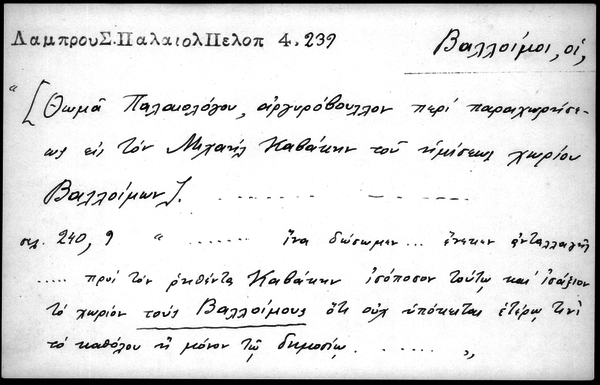 ΛαμπρουΣ.ΠαλαιολΠελοπ 4.239
Βαλλοίμοι, οἱ,
“[Θωμᾶ Παλαιολόγου, ἀργυρόβουλλον περί παραχωρήσε-
ως εἰς τόν Μιχαήλ Καβάκην τοῦ ἡμίσεως χωρίου
Βαλλοίμων]. ........ — ........
σελ. 240, 9 “ ........ ἵνα δώσωμεν... ἕνεκεν ἀνταλλαγῆς
..... πρός τόν ῥηθέντα Καβάκην ἰσόποσον τούτῳ καί ἰσάξιον
τό χωρίον τούς Βαλλοίμους ὅτι οὐχ ὑπόκειται ἑτέρῳ τινί
τό καθόλου ἤ μόνον τῷ δημοσίῳ. ....... „